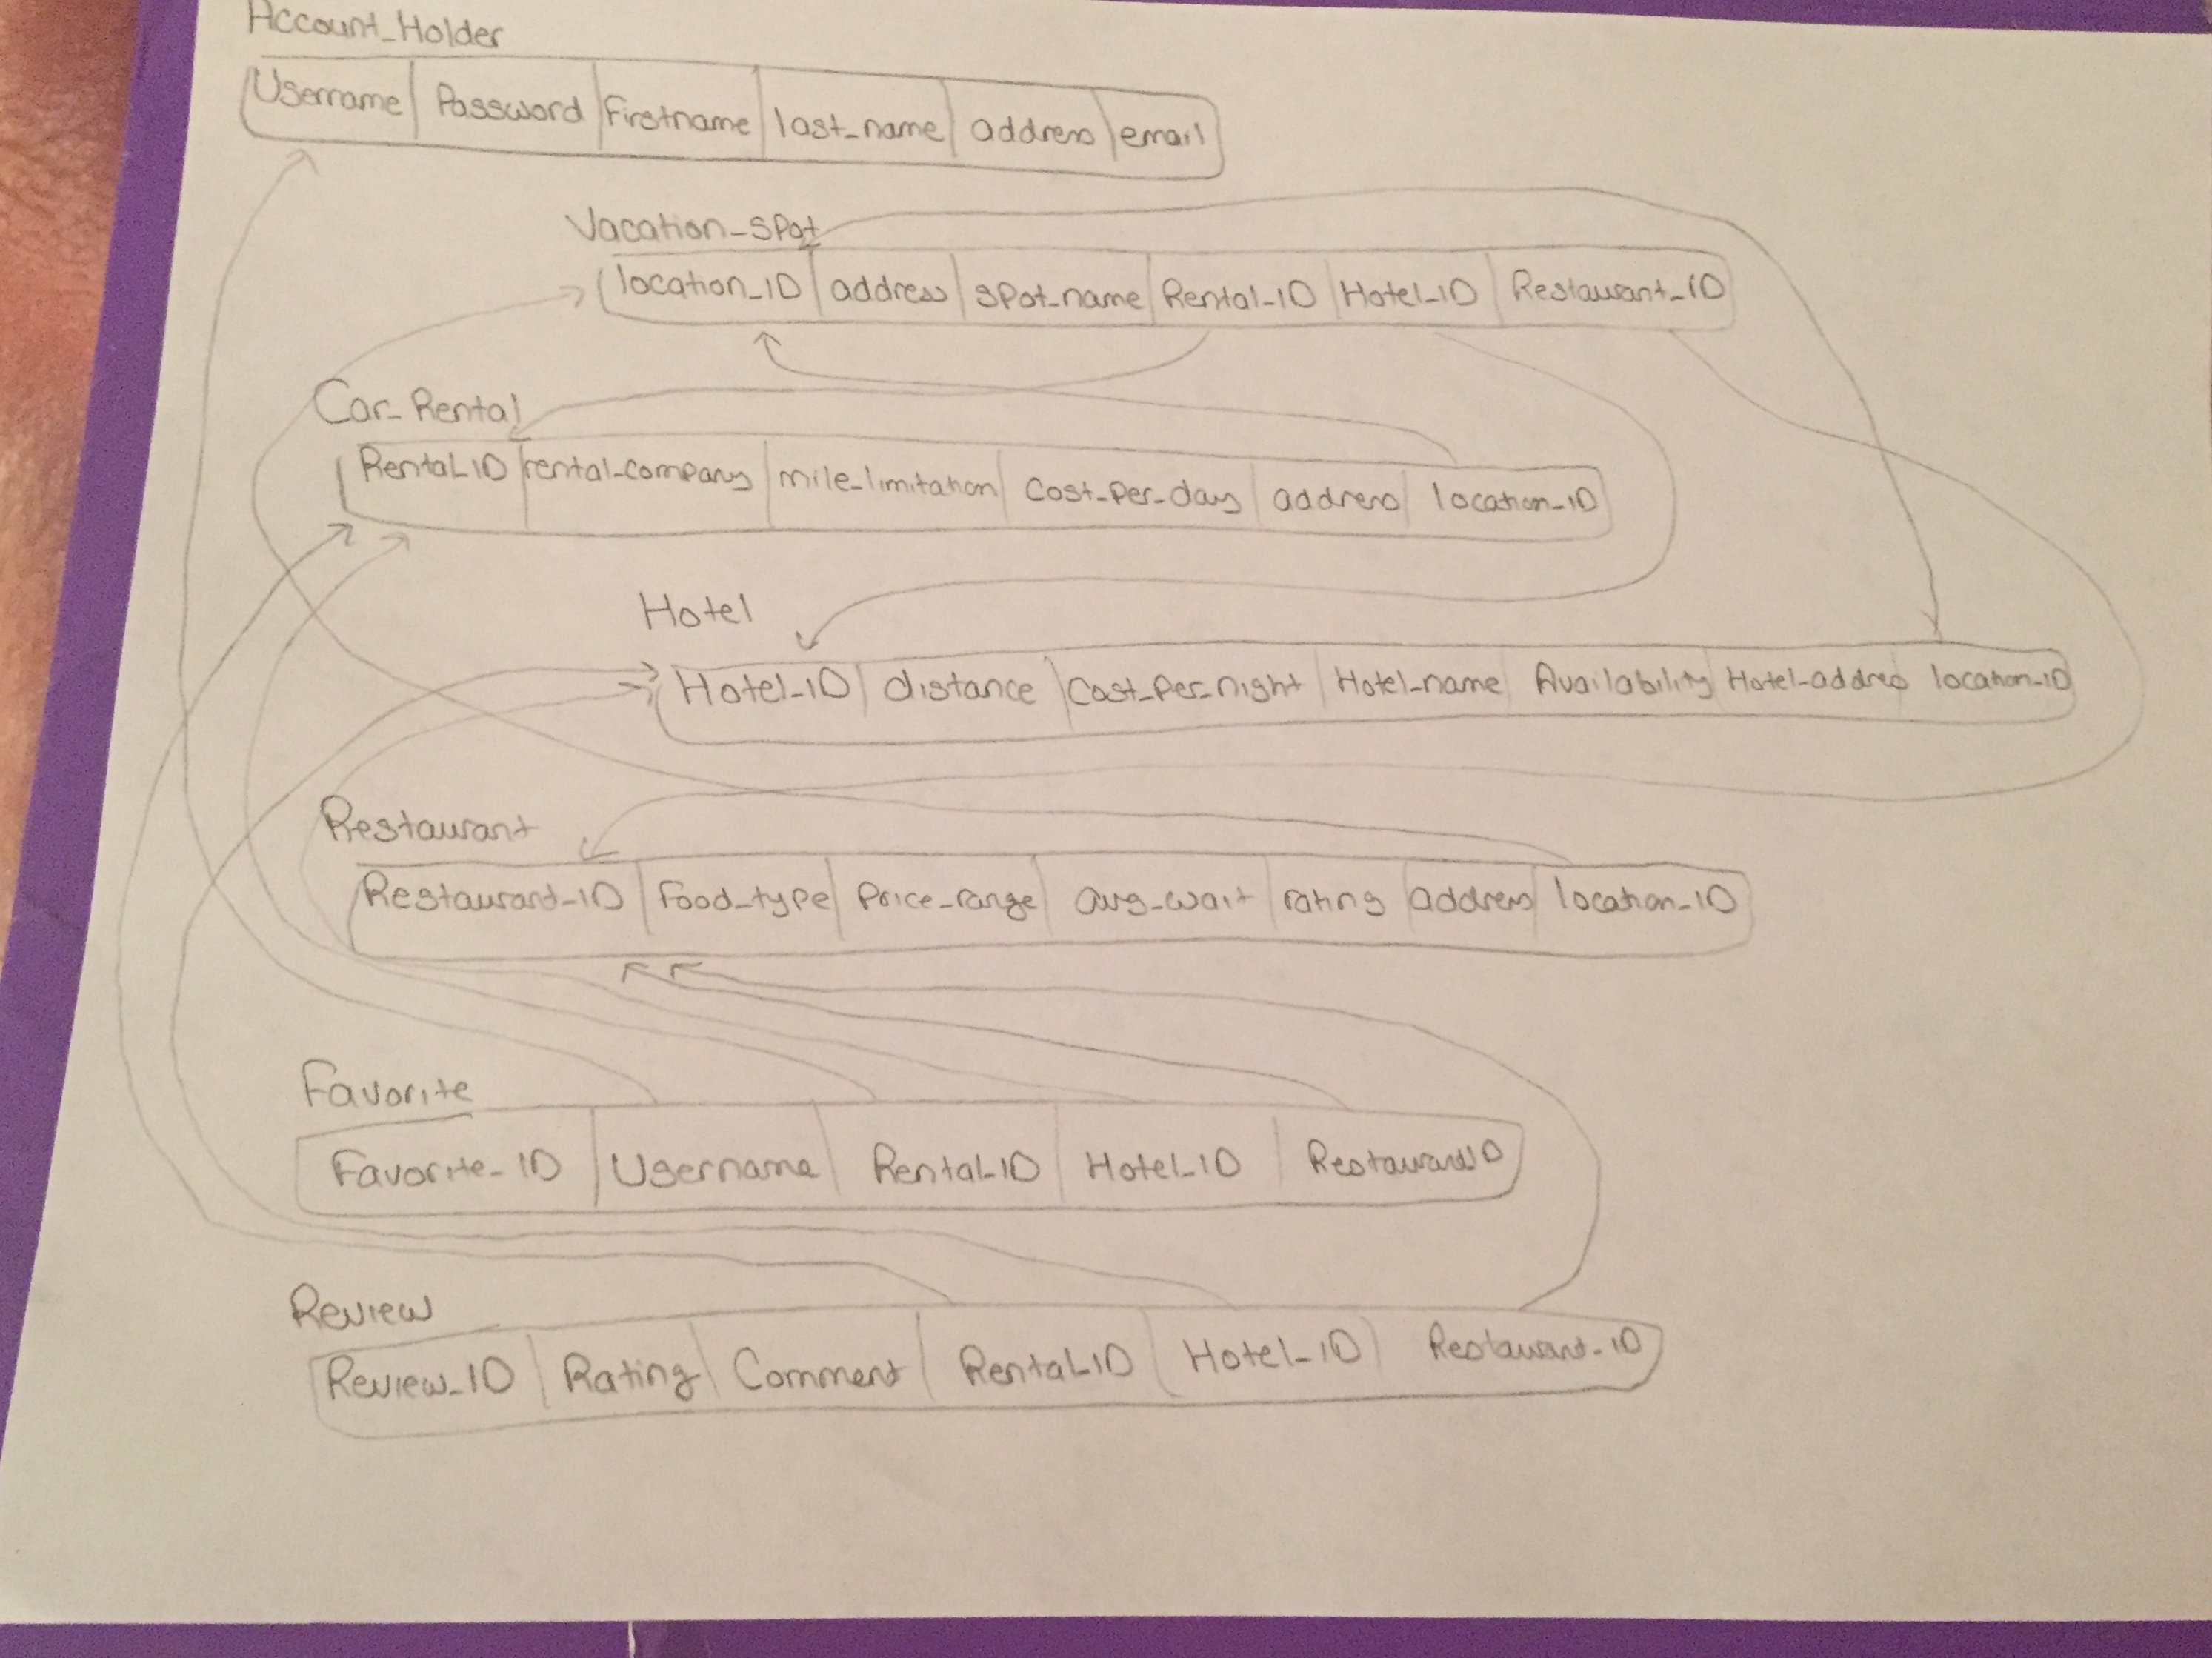 Account_Holder
Username Password Firstname last_name address email
Vacation_Spot
location_ID address spot_name Rental_ID Hotel_ID Restaurant_ID
Car_Rental
Rental_ID rental_company mile_limitation Cost_per_day address location_ID
Hotel
Hotel_ID distance Cost_per_night Hotel_name Availability Hotel_address location_ID
Restaurant
Restaurant_ID Food_type Price_range avg_wait rating address location_ID
Favorite
Favorite_ID Username Rental_ID Hotel_ID RestaurantID
Review
Review_ID Rating Comment Rental_ID Hotel_ID Restaurant_ID